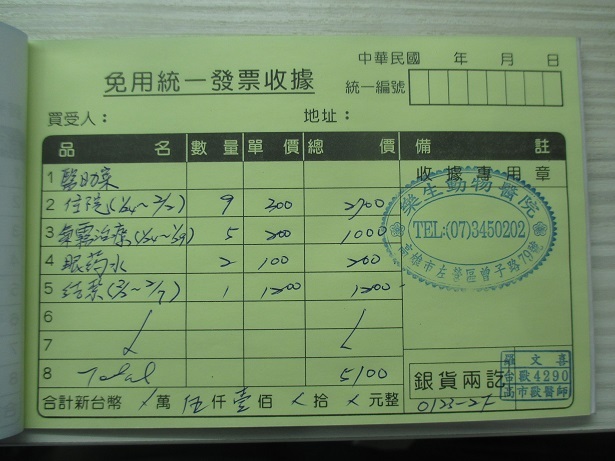 中華民國 年 月 日
免用統一發票收據
統一編號
買受人： 地址：
品 名 數 量 單 價 總 價 備 註
收據專用章
1
2 住院(1/24~2/2) 9 300 2700
3 氣霧治療(1/24~1/29) 5 200 1000
4 眼药水 2 100 200
5 1 1200 1200
6
7
8 Total 5100
樂生動物醫院
TEL:(07)3450202
高雄市左營區曾子路79號
銀貨兩訖
羅文喜
台獸4290
高市獸醫師
合計新台幣 萬 伍仟壹佰 拾 元整